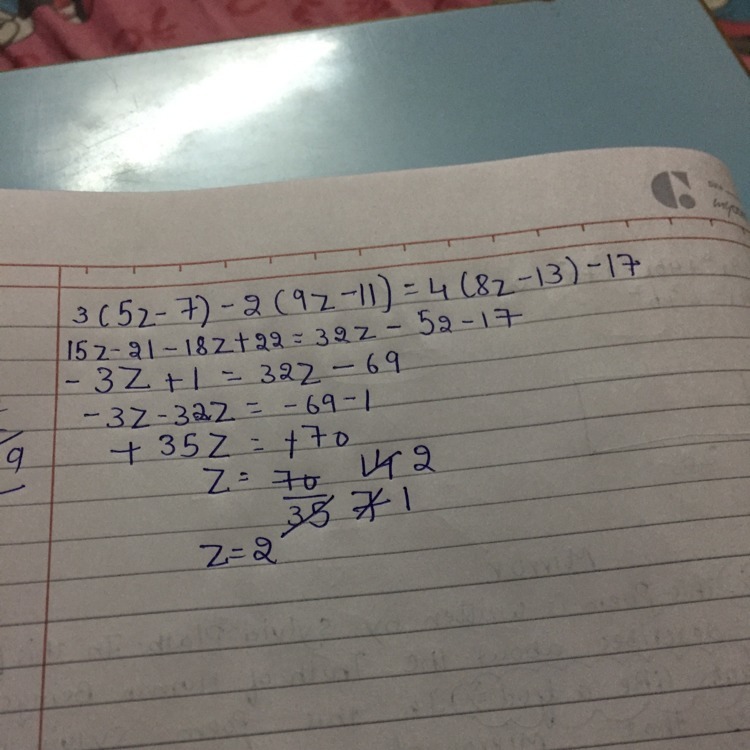 3(5z-7)-2(9z-11)=4(8z-13)-17
15z-21-18z+22=32z-52-17
-3z+1=32z-69
-3z-32z=-69-1
+35z=+70
z=70/35 14/7 2/1
z=2
9